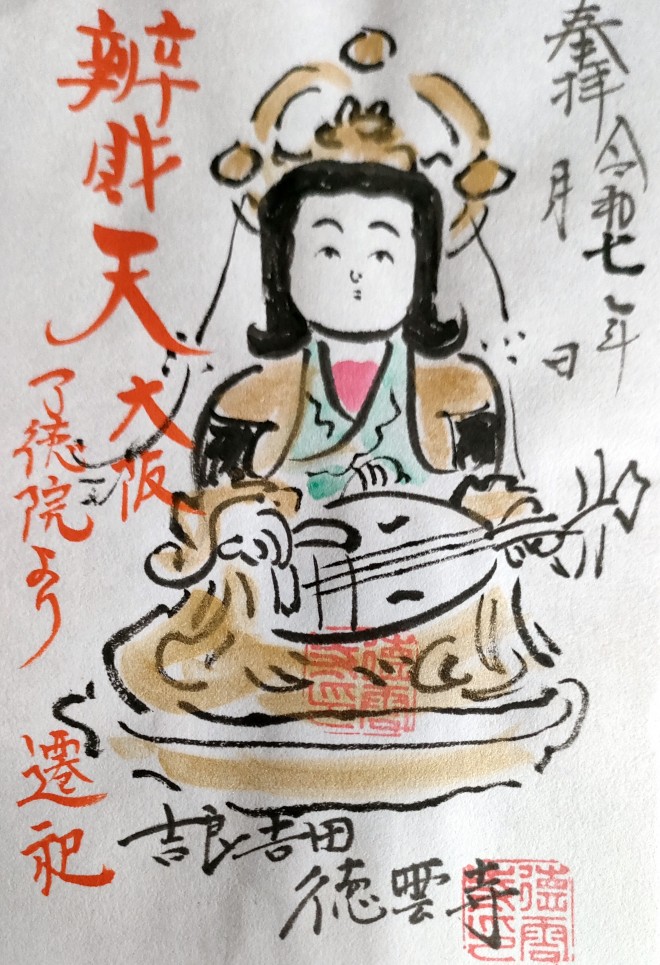 奉拝
令和七年
月
日
辨財天
大阪
了徳院より
遷祀
吉良吉田
徳雲寺